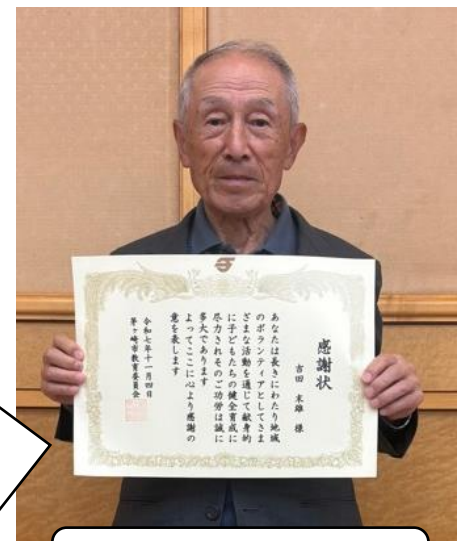 感謝状
吉田 末雄 様
あなたは長きにわたり地域
のボランティアとしてさま
ざまな活動を通じて献身的
に子どもたちの健全育成に
尽力されそのご功労は誠に
多大であります
よってここに心より感謝の
意を表します
令和七年十一月四日
茅ヶ崎市教育委員会